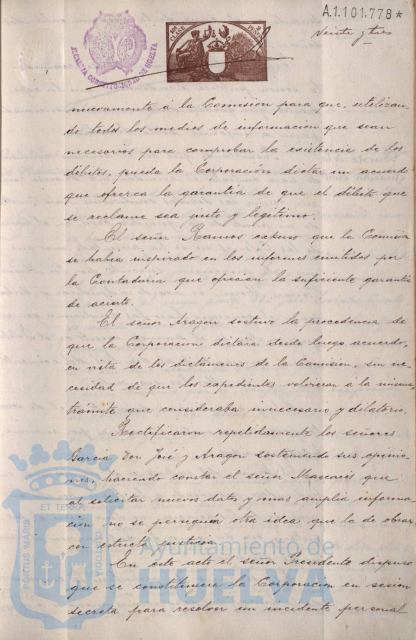 A.1.101.778*
Veinte y tres
nuevamente á la Comisión para que, utilizan-
do todos los medios de información que sean
necesarios para comprobar la existencia de los
débitos, pueda la Corporación dictar un acuerdo
que ofrezca la garantía de que el débito que
se reclame sea justo y legítimo.
El señor Ramos expuso que la Comisión
se había inspirado en los informes emitidos por
la Contaduría que ofrecían la suficiente garantía
de acierto.
El señor Aragon sostuvo la procedencia de
que la Corporacion dictara desde luego acuerdo,
en vista de los dictámenes de la Comision, sin ne-
cesidad de que los expedientes volvieran a la misma
trámite que consideraba innecesario y dilatorio.
Rectificaron repetidamente los señores
Garcia Don José y Aragon sosteniendo sus opinio-
nes, haciendo constar el señor Mascarós que
al solicitar nuevos datos y mas amplia informa-
cion no se perseguia otra idea que la de obrar
con estricta justicia.
En este acto el señor Presidente dispuso
que se constituyera la Corporacion en sesion
secreta para resolver un incidente personal
PORTUS MARIS
ET TERRAE
Ayuntamiento de
HUELVA